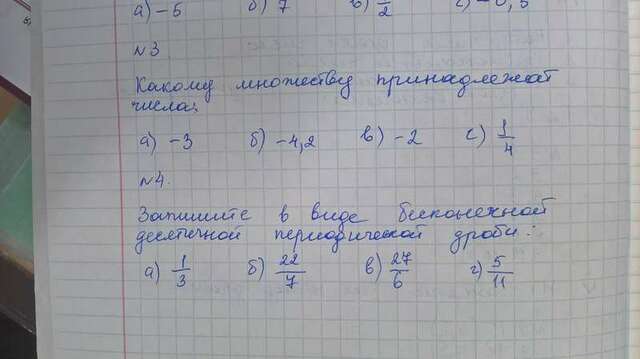 а) -5 б) 7 в) 1/2 с) -0,5
№3
Какому множеству принадлежат
числа:
а) -3 б) -4,2 в) -2 с) 1/4
№4.
Запишите в виде бесконечной
десятичной периодической дроби:
а) 1/3 б) 22/7 в) 27/6 г) 5/11